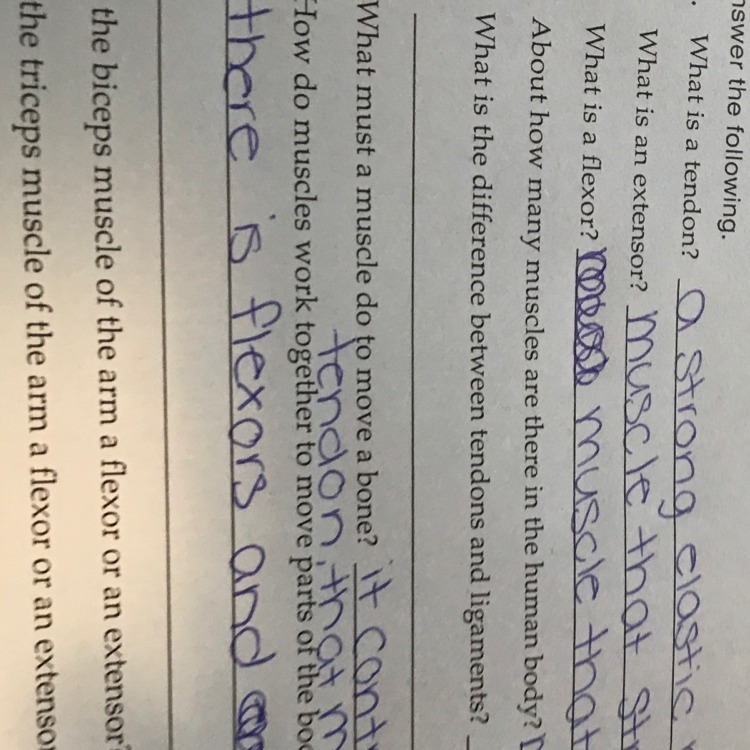 nswer the following.
. What is a tendon? a strong elastic
What is an extensor? muscle that st
What is a flexor? muscle that
About how many muscles are there in the human body?
What is the difference between tendons and ligaments?
What must a muscle do to move a bone? it cont
tendon, that m
How do muscles work together to move parts of the bo
there is flexors and
the biceps muscle of the arm a flexor or an extensor?
the triceps muscle of the arm a flexor or an extensor